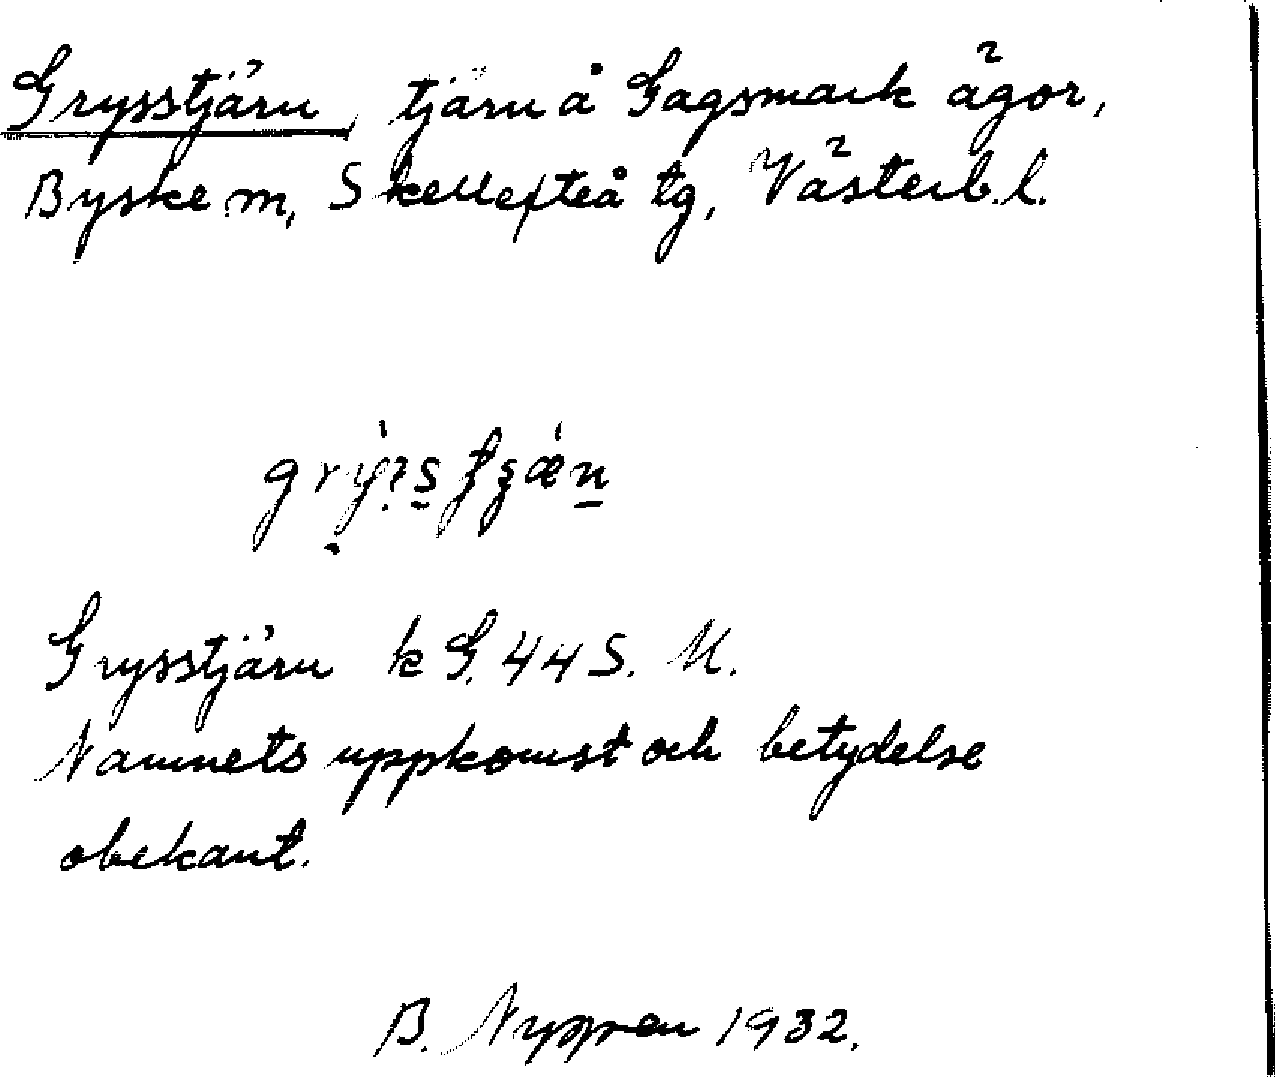 Grysstjärn, tjärn å Gagsmark ägor,
Byske m, Skellefteå tg, Västerb.l.
Grysstjärn k G. 44 S. M.
Namnets uppkomst och betydelse
obekant.
B. 1932.